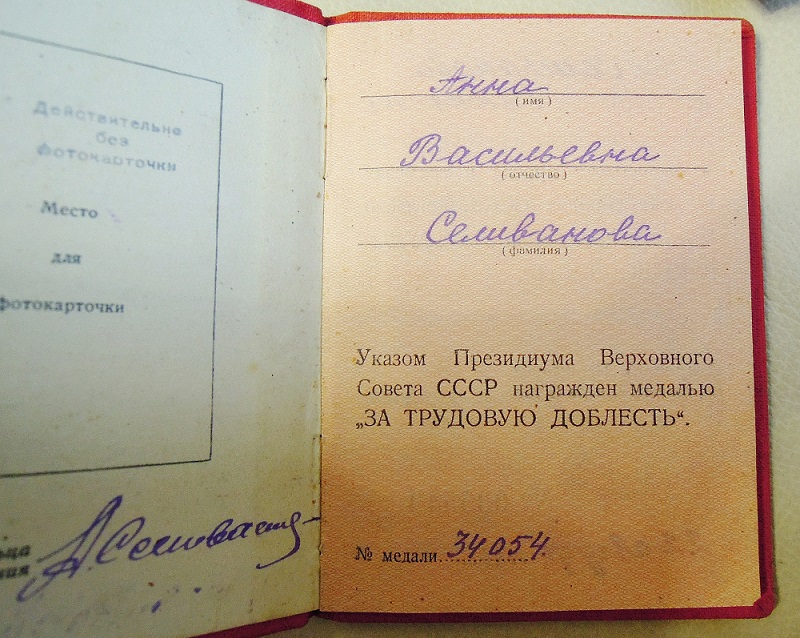 Действительно
без
фотокарточки
Место
для
фотокарточки
А. Селиванова
Анна
( имя )
Васильевна
( отчество )
Селиванова
( фамилия )
Указом Президиума Верховного
Совета СССР награжден медалью
„ЗА ТРУДОВУЮ ДОБЛЕСТЬ“.
№ медали 34054.